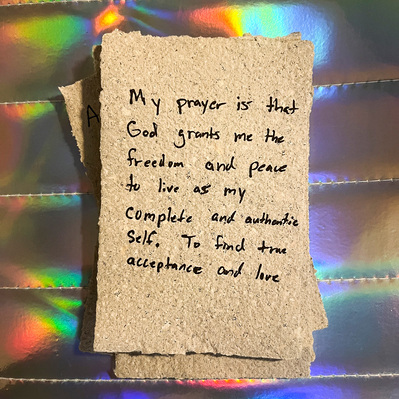 A
My prayer is that
God grants me the
freedom and peace
to live as my
complete and authentic
self. To find true
acceptance and love